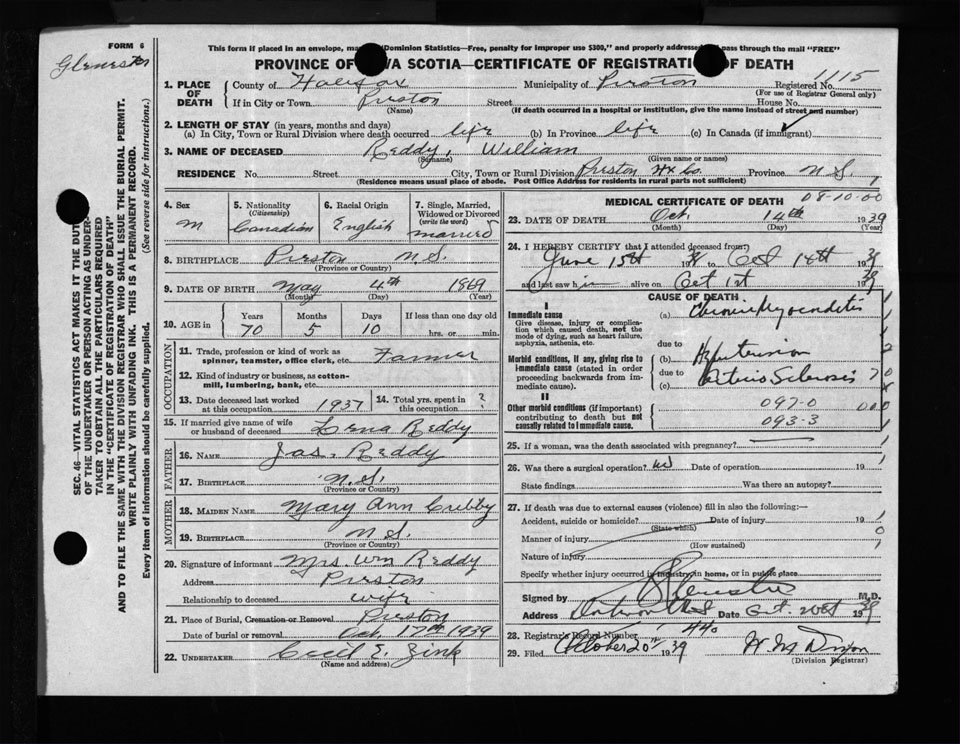 FORM 6
Glenester
This form if placed in an envelope, ma "Dominion Statistics—Free, penalty for improper use $300," and properly addressed pass through the mail "FREE"
PROVINCE OF VA SCOTIA—CERTIFICATE OF REGISTRATION OF DEATH
1115
1. PLACE OF DEATH
County of Halifax Municipality of Preston Registered No.
(For use of Registrar General only)
If in City or Town Preston Street House No.
(Name) (If death occurred in a hospital or institution, give the name instead of street and number)
2. LENGTH OF STAY (in years, months and days)
(a) In City, Town or Rural Division where death occurred life (b) In Province life (c) In Canada (if immigrant)
3. NAME OF DECEASED Reddy, William
(Surname) (Given name or names)
RESIDENCE No. Street City, Town or Rural Division Preston Hx Co. Province N.S.
(Residence means usual place of abode. Post Office Address for residents in rural parts not sufficient)
4. Sex M
5. Nationality (Citizenship) Canadian
6. Racial Origin English
7. Single, Married, Widowed or Divorced (write the word) married
8. BIRTHPLACE Preston N.S.
(Province or Country)
9. DATE OF BIRTH May 4th 1869
(Month) (Day) (Year)
10. AGE in Years 70 Months 5 Days 10 If less than one day old hrs. or min.
OCCUPATION
11. Trade, profession or kind of work as spinner, teamster, office clerk, etc. Farmer
12. Kind of industry or business, as cotton-mill, lumbering, bank, etc.
13. Date deceased last worked at this occupation 1937 14. Total yrs. spent in this occupation ?
15. If married give name of wife or husband of deceased Lena Reddy
FATHER
16. NAME Jas. Reddy
17. BIRTHPLACE N.S.
(Province or Country)
MOTHER
18. MAIDEN NAME Mary Ann Cribby
19. BIRTHPLACE N.S.
(Province or Country)
20. Signature of informant Mrs. Wm Reddy
Address Preston
Relationship to deceased wife
21. Place of Burial, Cremation or Removal Preston
Date of burial or removal Oct. 17th 1939
22. UNDERTAKER Cecil E. Zink
(Name and address)
MEDICAL CERTIFICATE OF DEATH
08-10-00
23. DATE OF DEATH Oct. 14th 1939
(Month) (Day)
24. I HEREBY CERTIFY that I attended deceased from
June 15th to Oct 14th 1939
and last saw him alive on Oct 1st 1939
CAUSE OF DEATH
I
Immediate cause
Give disease, injury or complication which caused death, not the mode of dying, such as heart failure, asphyxia, asthenia, etc.
(a) Chronic Myocarditis
due to
Morbid conditions, if any, giving rise to immediate cause (stated in order proceeding backwards from immediate cause).
(b) Hypertension
due to
(c) Arterio Sclerosis
II
Other morbid conditions (if important) contributing to death but not causally related to immediate cause.
097-0
093-3
25. If a woman, was the death associated with pregnancy?
26. Was there a surgical operation? no Date of operation 19
State findings Was there an autopsy?
27. If death was due to external causes (violence) fill in also the following:—
Accident, suicide or homicide? Date of injury 19
(State which)
Manner of injury
(How sustained)
Nature of injury
Specify whether injury occurred in industry, in home, or in public place
Signed by M.D.
Address Date Oct. 20th 1939
28. Registrar's Record Number 440
29. Filed October 20th 1939
(Division Registrar)
SEC. 46—VITAL STATISTICS ACT MAKES IT THE DUTY
OF THE UNDERTAKER OR PERSON ACTING AS UNDER-
TAKER TO OBTAIN ALL THE PARTICULARS REQUIRED
IN THE "CERTIFICATE OF REGISTRATION OF DEATH"
AND TO FILE THE SAME WITH THE DIVISION REGISTRAR WHO SHALL ISSUE THE BURIAL PERMIT.
WRITE PLAINLY WITH UNFADING INK. THIS IS A PERMANENT RECORD.
Every item of information should be carefully supplied. (See reverse side for instructions.)